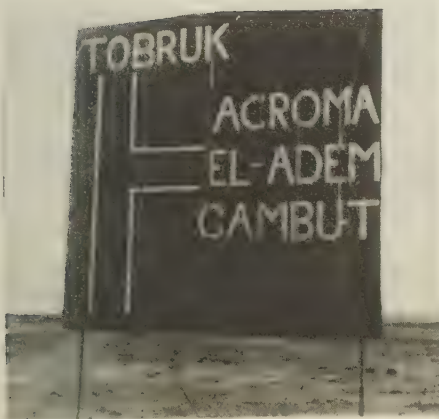 TOBRUK
ACROMA
EL-ADEM
GAMBUT